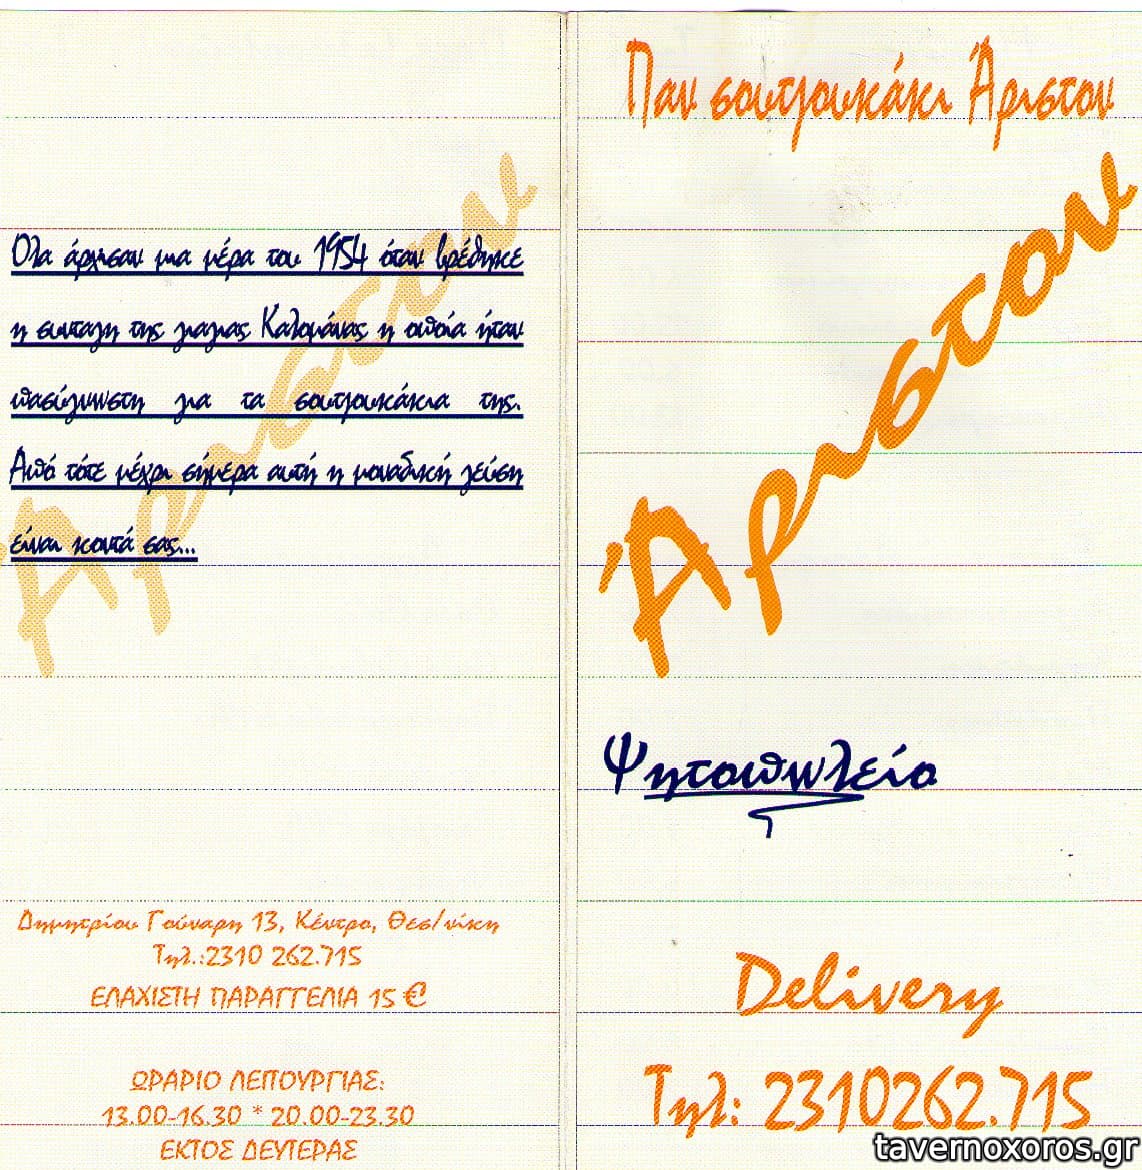 Όλα άρχισαν μια μέρα του 1954 όταν βρέθηκε
η συνταγη της γιαγιας Καλομάνας η οποία ήταν
πασύγνωστη για τα σουτζουκάκια της.
Από τότε μέχρι σήμερα αυτή η μοναδική γεύση
είναι κοντά σας...
Άριστον
Δημητρίου Γούναρη 13, Κέντρο, Θεσ/νίκη
Τηλ.:2310 262.715
ΕΛΑΧΙΣΤΗ ΠΑΡΑΓΓΕΛΙΑ 15 €
ΩΡΑΡΙΟ ΛΕΙΤΟΥΡΓΙΑΣ:
13.00-16.30 * 20.00-23.30
ΕΚΤΟΣ ΔΕΥΤΕΡΑΣ
Παν σουτζουκάκι Άριστον
Άριστον
Ψητοπωλείο
Delivery
Τηλ: 2310262.715
tavernoxoros.gr